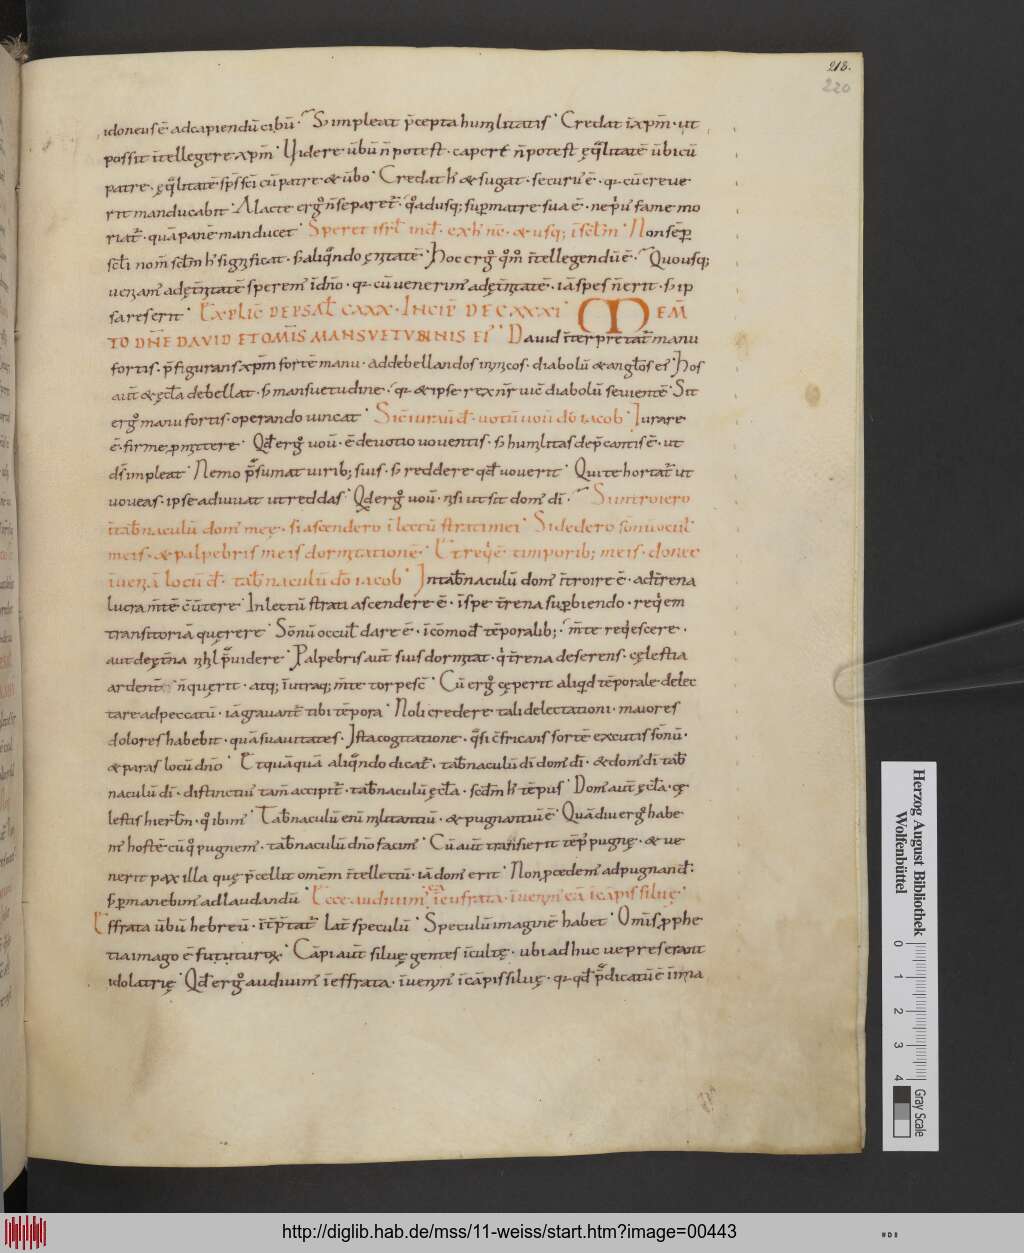 218.
220
idoneus ē ad capiendū cibū. S; impleat p̄cepta humilitatis. Credat ī xp̄m. ut
possit ītellegere xp̄m. Videre ūbū n̄ potest. capere n̄ potest ęq̄litatē ūbi cū
patre. ęq̄litatē sp̄s sc̄i cū patre & ūbo. Credat h̄ & sugat. securꝰ ē. q; cū creue
rit manducabit. A lacte ergo n̄ separet̄. q̊adusq; sup̄ matre sua ē. ne pͥus fame mo
riat̄. quā panē manducet. Speret isrl̄ in dn̄o. ex h̄ nc̄. & usq; ī sc̄lm. Non sēp
sc̄li nom̄ sc̄lm h̄ significat. s; aliqn̄do ęt̄nitatē. Hoc ergo q̊m̊ ītellegendū ē. Quousq;
ueniam ad ęt̄nitatē sperem ī dn̄o. q; cū venerim ad ęt̄nitatē. iā spes n̄ erit. s; ip
sa res erit. EXPLIC̄ DE PSAL̄ CXXX. INCIP̄ DE CXXXI. MEM̄
TO DN̄E DAVID ET OMĪS MANSVETVDINIS EIꝰ. David īterpretat̄ manu
fortis. p̄figurans xp̄m fortē manu. ad debellandos inimicos. diabolū & anglōs eiꝰ. Hos
aut̄ & ęcl̄a debellat. s; mansuetudine. q; & ipse rex n̄r uic̄ diabolū seuientē. Sit
ergo manu fortis. operando uincat. Sic̄ iurau̅ dn̄o. uotū uou̅ dō iacob. Iurare
ē. firme p̄mittere. Qd̄ ergo uou̅. ē deuotio uouentis. s; humilitas dep̄cantis ē. ut
ds̄ impleat. Nemo p̄sumat uirib; suis. s; reddere qd̄ uouerit. Qui te hortat̄ ut
uoueas. ipse adiuuat ut reddas. Qd̄ ergo uou̅. nisi ut sit domꝰ dī. Si introiero
ī tab̄naculū domꝰ meę. si ascendero ī lectū strati mei. Si dedero sōnū ocul̄
meis. & palpebris meis dormitationē. Et requiē timporib; meis. donec
īueniā locū dn̄o. tab̄naculū dō iacob. In tab̄naculū domꝰ ītroire ē. ad t̄rena
lucra m̄tē c̄ūtere. In lectū strati ascendere ē. ī spe t̄rena sup̄biendo. requiem
transitoriā querere. Sōnū occul̄ dare ē. ī cōmod̄ tēporalib;. m̄te requiescere.
aut de ęt̄na nihil p̄uidere. Palpebris aut̄ suis dormitat. qͥ t̄rena deserens. cęlestia
ardent̄ n̄ querit. atq; ī utraq; m̄te torpesc̄. Cū ergo cęperit aliqd tēporale delec
tare ad peccatū. iā grauant̄ tibi tēpora. Noli credere tali delectationi. maiores
dolores habebit. quā suauitates. Ista cogitatione. q̄si c̄fricans fortē excutis sōnū.
& paras locū dn̄o. Et quāquā aliqn̄do dicat̄. tab̄naculū dī domꝰ dī. & domꝰ dī tab̄
naculū dī. distinctiuꝰ tam̄ accipit̄. tab̄naculū ęcl̄a. scd̄m h̄ tēpus. Domꝰ aut̄ ęcl̄a. cę
lestis hierlm̄. q̊ ibimꝰ. Tab̄naculū enī militantiū. & pugnantiū ē. Quādiu ergo habe
mꝰ hostē cū q̊ pugnemꝰ. tab̄naculū dn̄o facimꝰ. Cū aut̄ transierit tēpꝰ pugnę. & ue
nerit pax illa quę p̄cellit omēm ītellectū. iā domꝰ erit. Non p̄cedemꝰ ad pugnand̄.
s; p̄manebimꝰ ad laudandū. Ecce audiuimꝰ eā ī eufrata. īuenimꝰ eā ī cāpis siluę.
Effrata ūbū hebreū. īt̄p̄tat̄ lat̄ speculū. Speculū imaginē habet. Omīs p̄phe
tia imago ē futuror̄. Cāpi aut̄ siluę gentes īcultę. ubi adhuc uepres erant
idolatrię. Qd̄ ergo audiuimꝰ ī effrata. īuenimꝰ ī cāpis siluę. q; qd̄ p̄dicatū ē ī ima
Herzog August Bibliothek
Wolfenbüttel
0 1 2 3 4
Gray Scale
http://diglib.hab.de/mss/11-weiss/start.htm?image=00443